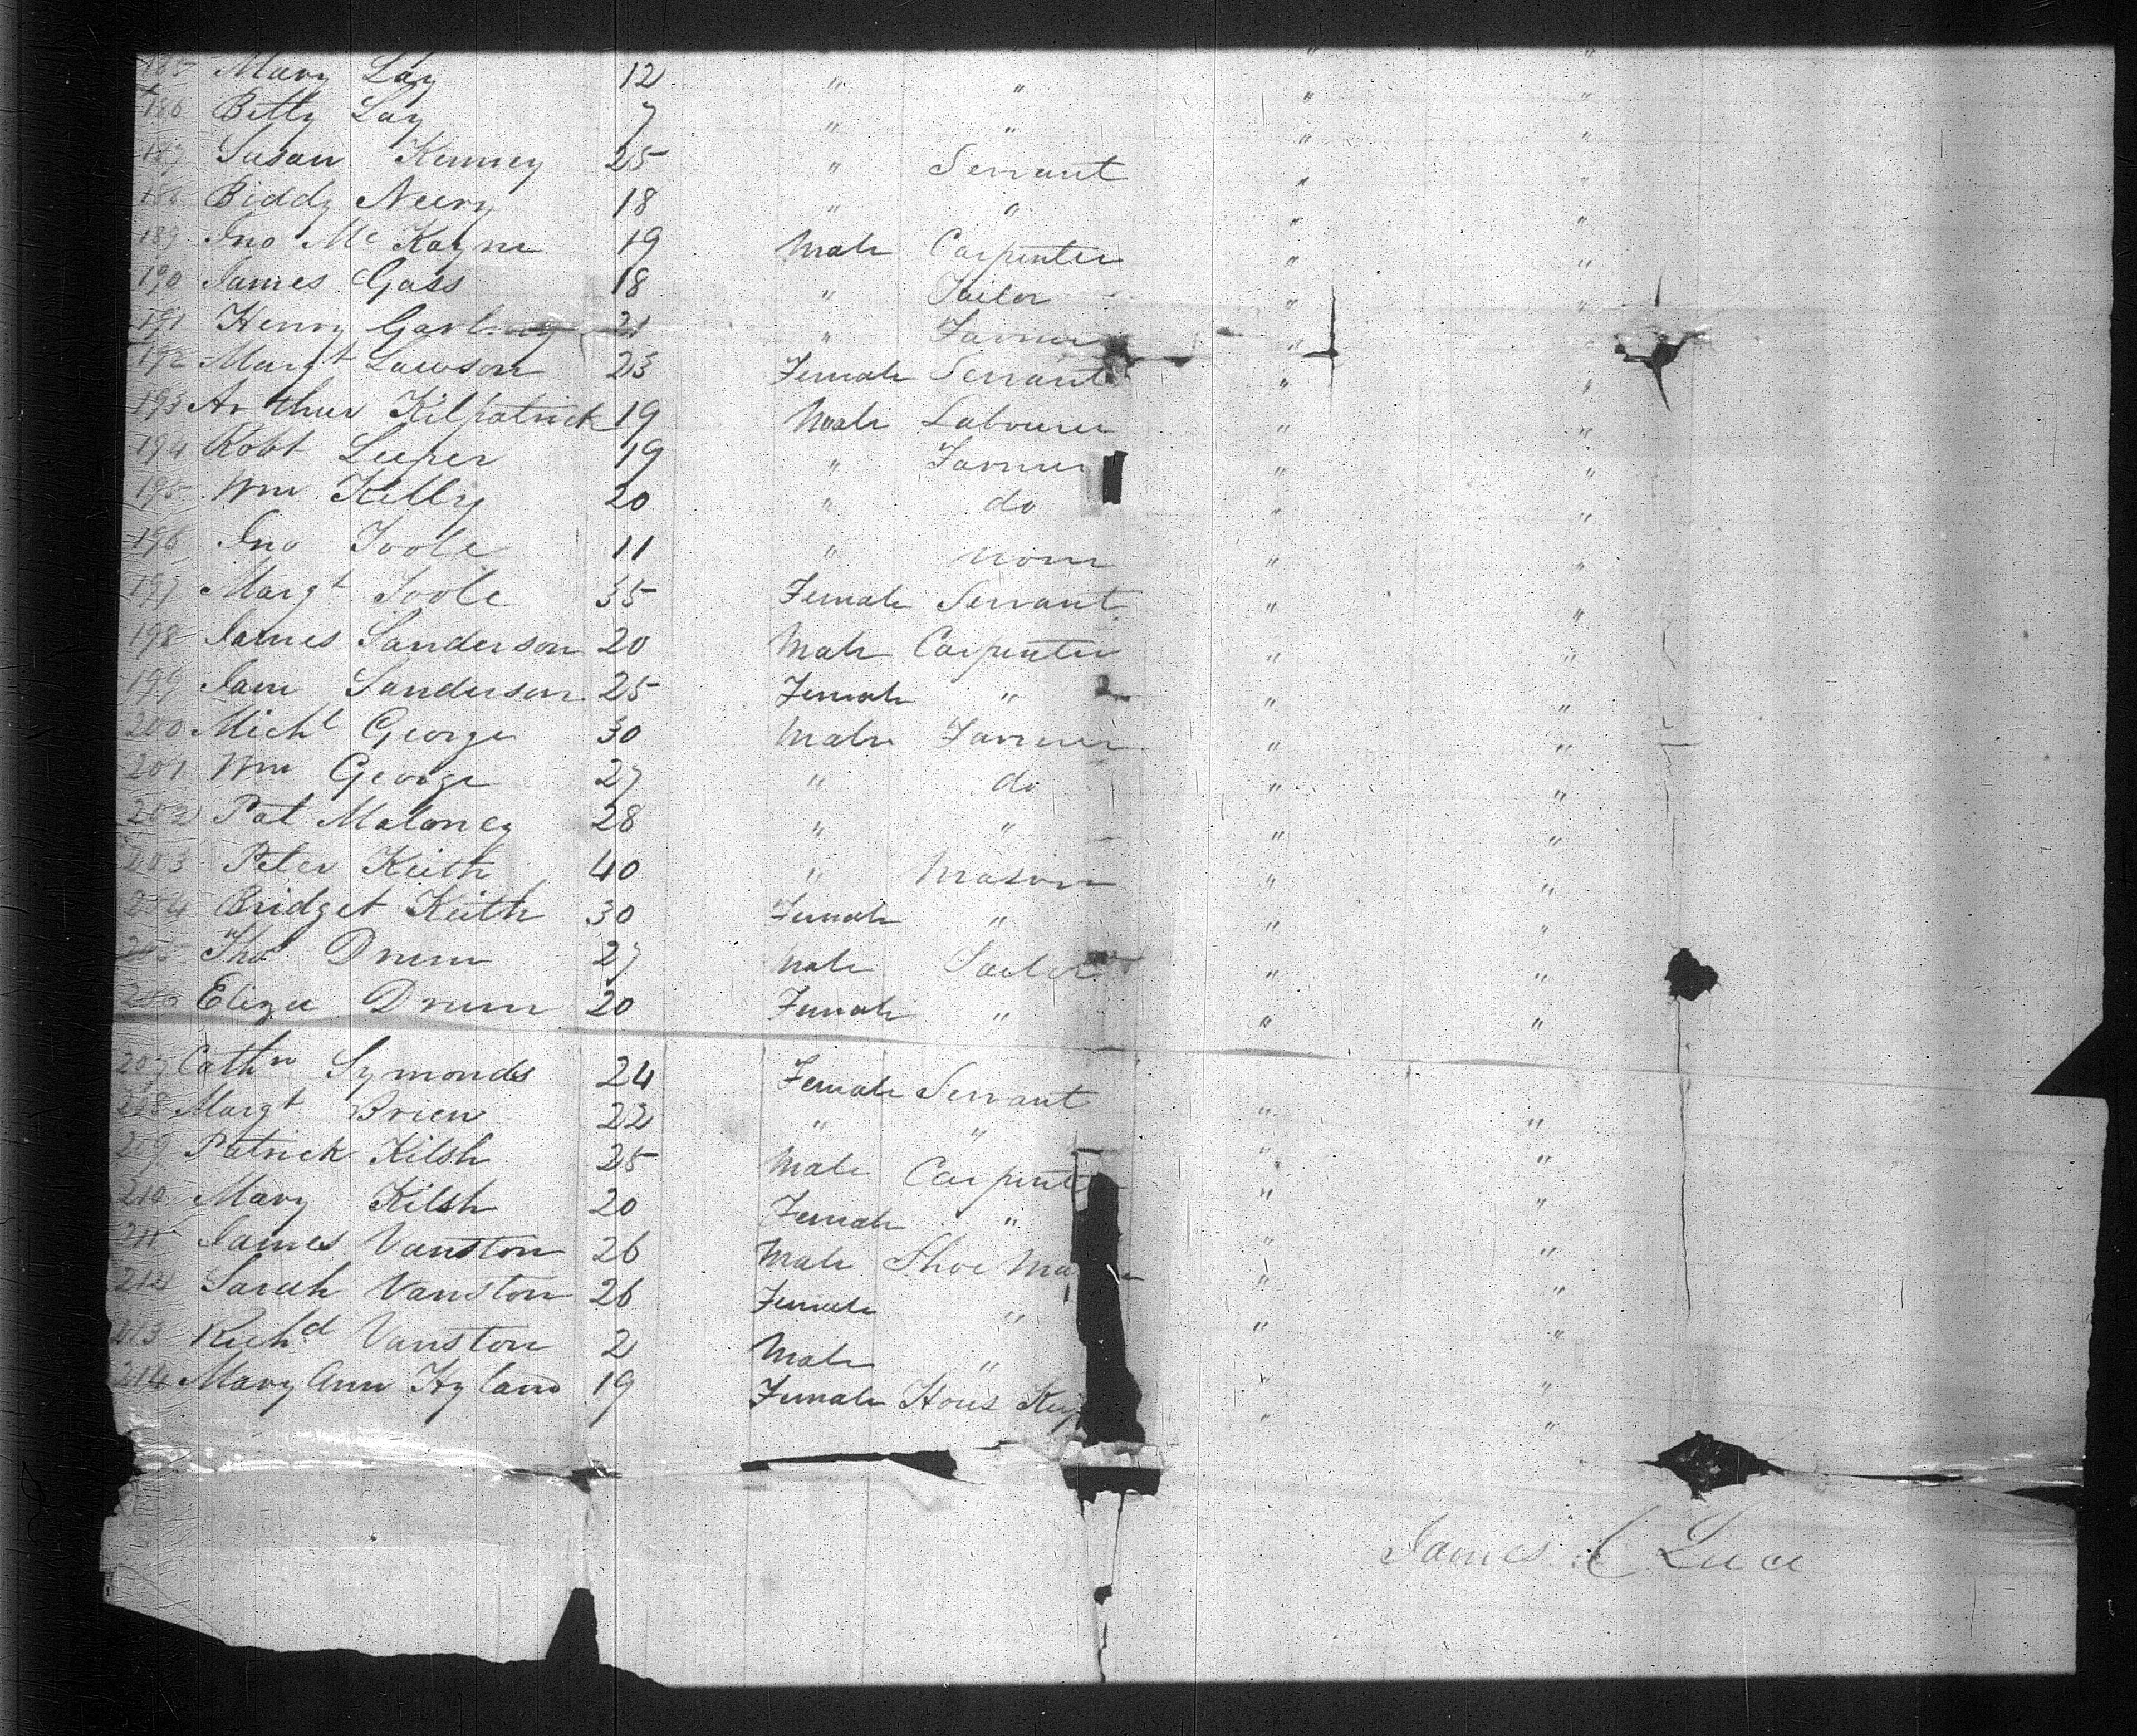 185 Mary Lay 12 " " " "
186 Betty Lay 7 " " " "
187 Susan Kenney 25 " Servant " "
188 Biddy Neery 18 " " " "
189 Jno Mc Kayne 19 Male Carpenter " "
190 James Gass 18 " Tailor " "
191 Henry 21 " Farmer " "
192 Margt Lawson 23 Female Servant " "
193 Arthur Kilpatrick 19 Male Labourer " "
194 Robt Leeper 19 " Farmer " "
195 Wm Kelly 20 " do " "
196 Jno Toole 11 " none " "
197 Margt Toole 35 Female Servant " "
198 James Sanderson 20 Male Carpenter " "
199 Jane Sanderson 25 Female " " "
200 Michl George 30 Male Farmer " "
201 Wm George 27 " do " "
202 Pat Maloney 28 " " " "
203 Peter Keith 40 " Mason " "
204 Bridget Keith 30 Female " " "
205 Thos Drum 27 Male Tailor " "
206 Eliza Drum 20 Female " " "
207 Cathn Symonds 24 Female Servant
208 Margt Brien 22 " " " "
209 Patrick Kilsh 25 Male Carpente " "
210 Mary Kilsh 20 Female " " "
211 James Vanston 26 Male Shoe Ma " "
212 Sarah Vanston 26 Female " " "
213 Richd Vanston 2 Male " " "
214 Mary Ann Hyland 19 Female Hous Keep " "
James C Luce